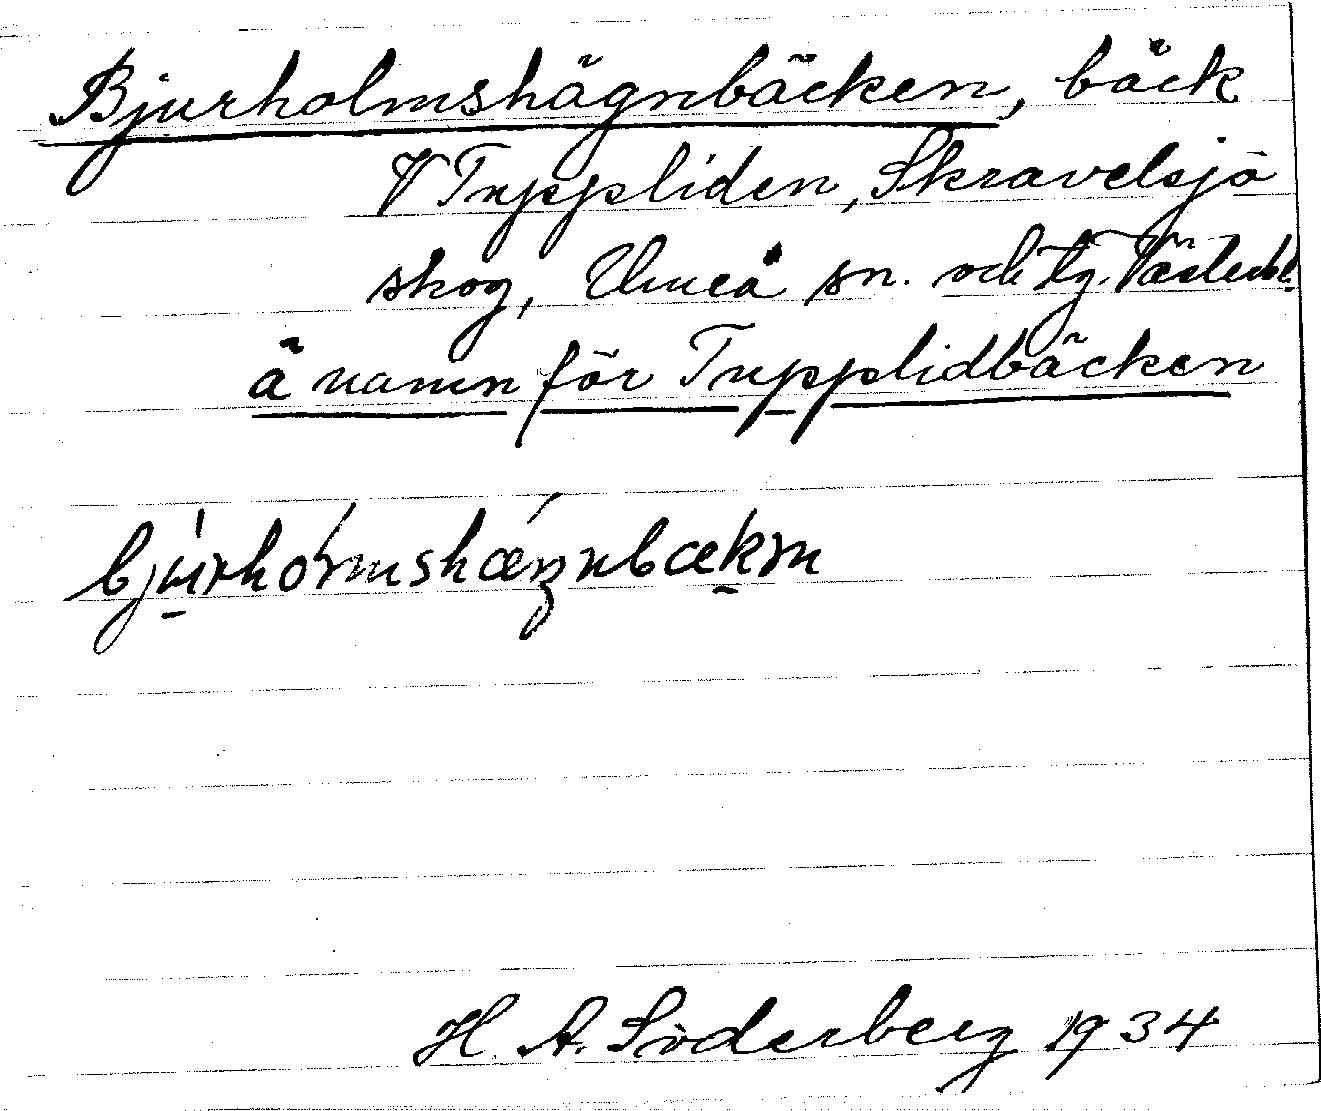 Bjurholmshägnbäcken, bäck
V Tuppliden, Skravelsjö
skog, Umeå sn. och tg. Västerb.
ä namn för Tupplidbäcken
bjurholmshæŋnbækṇ
H. A. Söderberg 1934